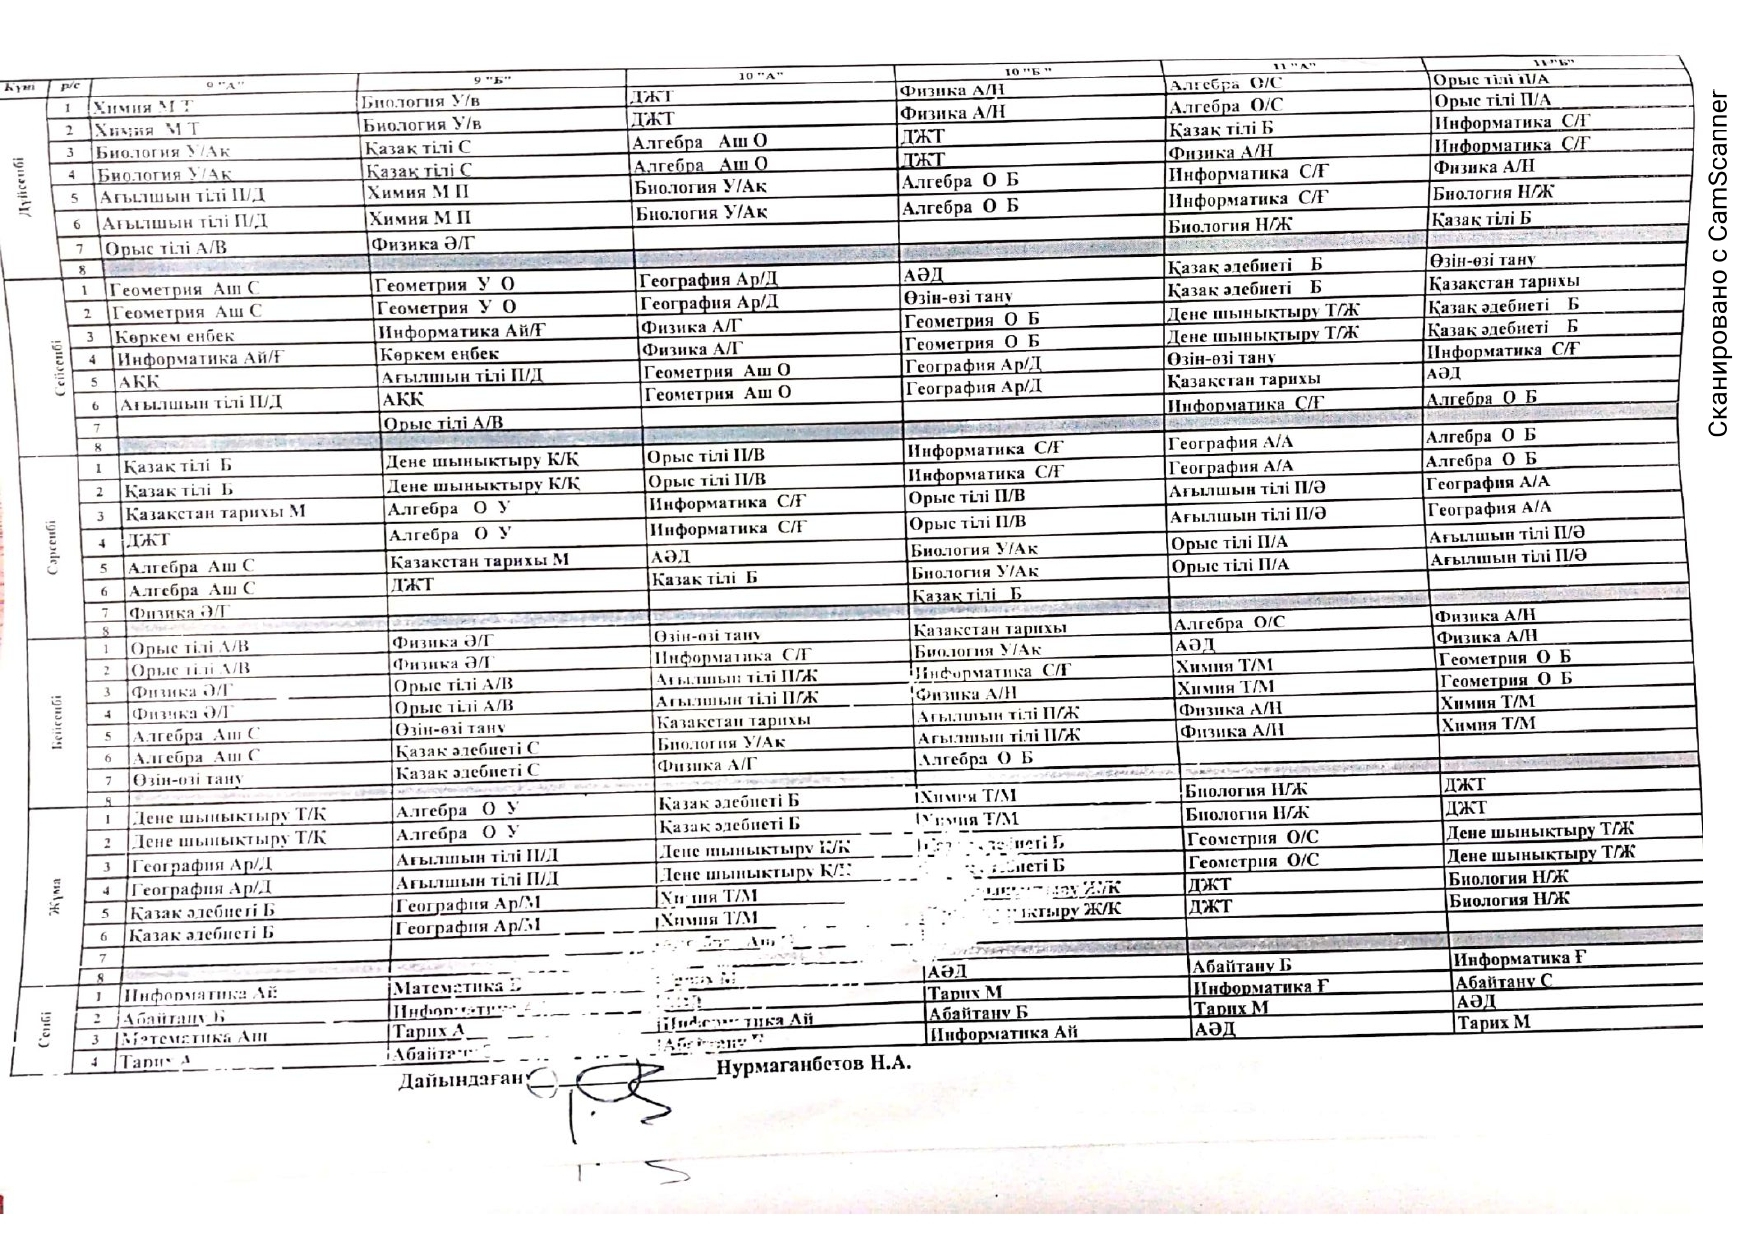 Күні р/с 9 "А" 9 "Б" 10 "А" 10 "Б" 11 "А" 11 "Б"
Дүйсенбі
1 Химия М Т Биология У/в ДЖТ Физика А/Н Алгебра О/С Орыс тілі П/А
2 Химия М Т Биология У/в ДЖТ Физика А/Н Алгебра О/С Орыс тілі П/А
3 Биология У/Ақ Қазақ тілі С Алгебра Аш О ДЖТ Қазақ тілі Б Информатика С/Ғ
4 Биология У/Ақ Қазақ тілі С Алгебра Аш О ДЖТ Физика А/Н Информатика С/Ғ
5 Ағылшын тілі П/Д Химия М П Биология У/Ақ Алгебра О Б Информатика С/Ғ Физика А/Н
6 Ағылшын тілі П/Д Химия М П Биология У/Ақ Алгебра О Б Информатика С/Ғ Биология Н/Ж
7 Орыс тілі А/В Физика Ә/Г Биология Н/Ж Қазақ тілі Б
8
Сейсенбі
1 Геометрия Аш С Геометрия У О География Ар/Д АӘД Қазақ әдебиеті Б Өзін-өзі тану
2 Геометрия Аш С Геометрия У О География Ар/Д Өзін-өзі тану Қазақ әдебиеті Б Қазақстан тарихы
3 Көркем еңбек Информатика Ай/Ғ Физика А/Г Геометрия О Б Дене шынықтыру Т/Ж Қазақ әдебиеті Б
4 Информатика Ай/Ғ Көркем еңбек Физика А/Г Геометрия О Б Дене шынықтыру Т/Ж Қазақ әдебиеті Б
5 АКК Ағылшын тілі П/Д Геометрия Аш О География Ар/Д Өзін-өзі тану Информатика С/Ғ
6 Ағылшын тілі П/Д АКК Геометрия Аш О География Ар/Д Қазақстан тарихы АӘД
7 Орыс тілі А/В Информатика С/Ғ Алгебра О Б
8
Сәрсенбі
1 Қазақ тілі Б Дене шынықтыру К/Қ Орыс тілі П/В Информатика С/Ғ География А/А Алгебра О Б
2 Қазақ тілі Б Дене шынықтыру К/Қ Орыс тілі П/В Информатика С/Ғ География А/А Алгебра О Б
3 Қазақстан тарихы М Алгебра О У Информатика С/Ғ Орыс тілі П/В Ағылшын тілі П/Ә География А/А
4 ДЖТ Алгебра О У Информатика С/Ғ Орыс тілі П/В Ағылшын тілі П/Ә География А/А
5 Алгебра Аш С Қазақстан тарихы М АӘД Биология У/Ақ Орыс тілі П/А Ағылшын тілі П/Ә
6 Алгебра Аш С ДЖТ Қазақ тілі Б Биология У/Ақ Орыс тілі П/А Ағылшын тілі П/Ә
7 Физика Ә/Г Қазақ тілі Б
8
Бейсенбі
1 Орыс тілі А/В Физика Ә/Г Өзін-өзі тану Қазақстан тарихы Алгебра О/С Физика А/Н
2 Орыс тілі А/В Физика Ә/Г Информатика С/Ғ Биология У/Ақ АӘД Физика А/Н
3 Физика Ә/Г Орыс тілі А/В Ағылшын тілі П/Ж Информатика С/Ғ Химия Т/М Геометрия О Б
4 Физика Ә/Г Орыс тілі А/В Ағылшын тілі П/Ж Физика А/Н Химия Т/М Геометрия О Б
5 Алгебра Аш С Өзін-өзі тану Қазақстан тарихы Ағылшын тілі П/Ж Физика А/Н Химия Т/М
6 Алгебра Аш С Қазақ әдебиеті С Биология У/Ақ Ағылшын тілі П/Ж Физика А/Н Химия Т/М
7 Өзін-өзі тану Қазақ әдебиеті С Физика А/Г Алгебра О Б
8
Жұма
1 Дене шынықтыру Т/Қ Алгебра О У Қазақ әдебиеті Б Химия Т/М Биология Н/Ж ДЖТ
2 Дене шынықтыру Т/Қ Алгебра О У Қазақ әдебиеті Б Химия Т/М Биология Н/Ж ДЖТ
3 География Ар/Д Ағылшын тілі П/Д Дене шынықтыру К/Қ Геометрия О/С Дене шынықтыру Т/Ж
4 География Ар/Д Ағылшын тілі П/Д Дене шынықтыру Геометрия О/С Дене шынықтыру Т/Ж
5 Қазақ әдебиеті Б География Ар/М Химия Т/М ДЖТ Биология Н/Ж
6 Қазақ әдебиеті Б География Ар/М Химия Т/М Ж/К ДЖТ Биология Н/Ж
7
8
Сенбі
1 Информатика Ай Математика АӘД Абайтану Б Информатика Ғ
2 Абайтану Б Тарих М Информатика Ғ Абайтану С
3 Математика Аш Тарих А Информатика Ай Абайтану Б Тарих М АӘД
4 Тарих А Информатика Ай АӘД Тарих М
Дайындаған Нурмаганбетов Н.А.
Сканировано с CamScanner